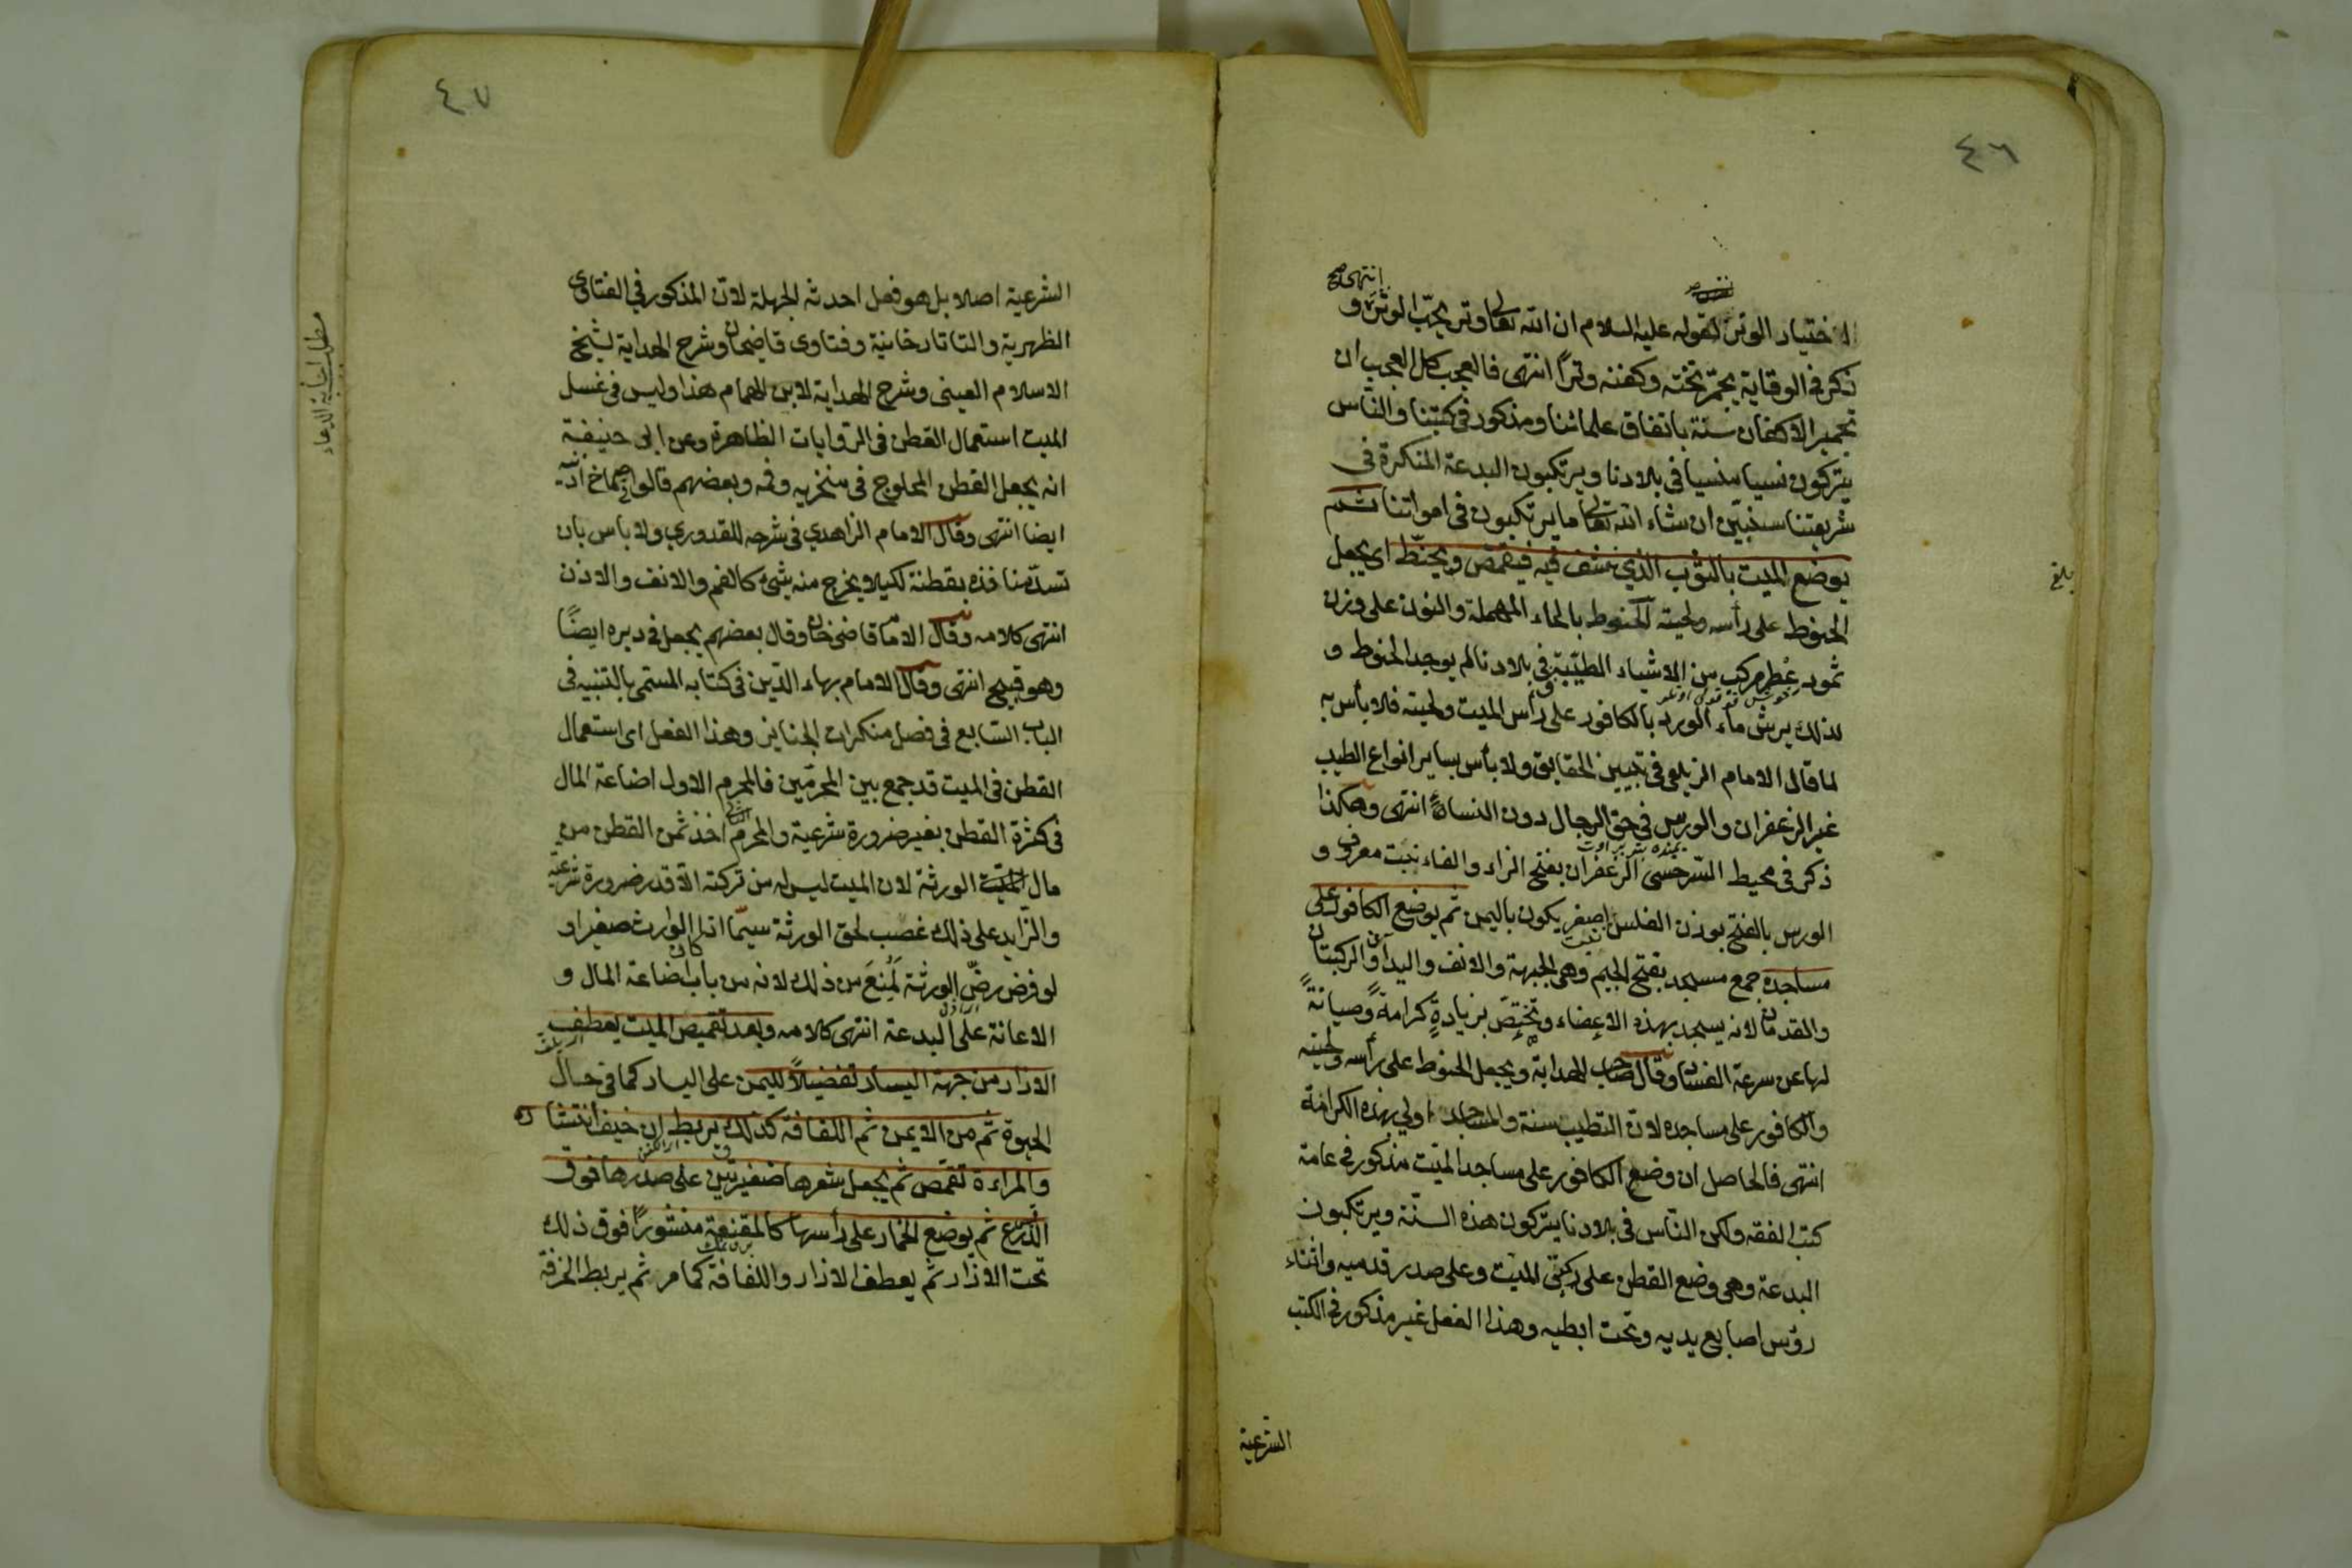 ٤٦
انتهى صح
الاختيار الوتر لقوله عليه السلام ان الله تعالى وتر يحب الوتر و
ذكر في الوقاية يجمر تخته وكفنه وترًا انتهى فالعجب كل العجب ان
تجمير الاكفان سنة باتفاق علمائنا ومذكور في كتبنا والناس
يتركون نسيا منسيا في بلادنا ويرتكبون البدعة المنكرة في
شريعتنا سنبين ان شاء الله تعالى ما يرتكبون في امواتنا ثم
يوضع الميت بالثوب الذي نشف فيه فيقمص ويحنّط اى يجعل
بلغ
الحنوط على رأسه ولحيته الحنوط بالحاء المهملة والنون على وزن
ثمود عطر مركب من الاشياء الطيّبة في بلادنا لم يوجد الحنوط و
لذلك يرش ماء الورد بالكافور على رأس الميت ولحيته فلا بأس به
لما قال الامام الزيلعى في تبيين الحقايق ولا بأس بساير انواع الطيب
غير الزعفران والورس في حق الرجال دون النساء انتهى وهكذا
ذكر في محيط السّرخسى الزعفران بفتح الزاء والفاء نبت معروف و
الورس بالفتح بوزن الفلس اصفر يكون باليمن ثم يوضع الكافور على
نبت
مساجده جمع مسجد بفتح الجيم وهى الجبهة والانف واليدان والركبتان
والقدمان لانه يسجد بهذه الاعضاء وتختصّ بزيادةٍ كرامةً وصيانةً
لها عن سرعة الفساد وقال صاحب الهداية ويجعل الحنوط على رأسه ولحيته
والكافور على مساجده لان التطيب سنة والمساجد اولى بهذه الكرامة
انتهى فالحاصل ان وضع الكافور على مساجد الميّت مذكور في عامة
كتب الفقه ولكن النّاس في بلادنا يتركون هذه السنّة ويرتكبون
البدعة وهى وضع القطن على ركبتى الميّت وعلى صدر قدميه واثناء
رؤس اصابع يديه وتحت ابطيه وهذا الفعل غير مذكور في الكتب
الشرعية
٤٧
الشرعية اصلا بل هو فعل احدثه الجهلة لانّ المذكور في الفتاوى
الظهرية والتاتارخانية وفتاوى قاضيخان وشرح الهداية لشيخ
الاسلام العينى وشرح الهداية لابن الهمام هذا وليس في غسل
الميت استعمال القطن في الرّوايات الظاهرة وعن ابى حنيفة
انه يجعل القطن المحلوج في منخريه وفمه وبعضهم قالوا صماخ اذنيه
ايضا انتهى وقال الامام الزاهدي في شرحه للقدوري ولا باس بان
تسدّ منافذه بقطنة لكيلا يخرج منه شئ كالفم والانف والاذن
انتهى كلامه وقال الامام قاضى خان وقال بعضهم يجعل في دبره ايضًا
وهو قبيح انتهى وقال الامام بهاء الدّين في كتابه المسمى بالتنبيه في
الباب السّابع في فصل منكرات الجنايز وهذا الفعل اى استعمال
القطن في الميت قد جمع بين المحرمّين فالمحرم الاول اضاعة المال
في كثرة القطن بغير ضرورة شرعية والمحرم الثانى اخذ ثمن القطن من
مال الورثة لان الميت ليس له من تركته الّا قدر ضرورة شرعية
والزّايد على ذلك غصب لحق الورثة سيمّا اذا كان الوارث صغيرا و
لو فرض رضّ الورثة لمنع من ذلك لانه من باب اضاعة المال و
الاعانة على البدعة انتهى كلامه وبعد تقميص الميت يعطف
الازار من جهة اليسار تفضيلاً لليمن على اليسار كما في حال
الحيوة ثم من الايمن ثم اللفافة كذلك يربط ان خيف انتشاره
والمراءة تقمص ثم يجعل شعرها ضفيرتين على صدرها فوق
الدّرع ثم يوضع الخمار على رأسها كالمقنعة منشورًا فوق ذلك
تحت الازار ثم يعطف الازار واللفافة كما مر ثم يربط الخرقة